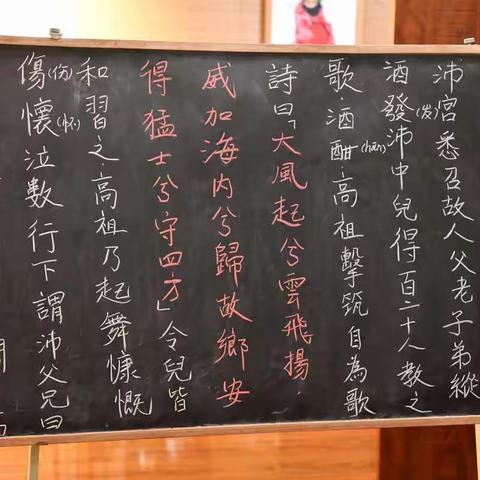 沛宮悉召故人父老子弟縱
酒發(发)沛中兒得百二十人教之
歌·酒酣(hān)·高祖擊筑自為歌
詩曰「大風起兮雲飛揚·
威加海内兮歸故鄉安
得猛士兮守四方」令兒皆
和習之高祖乃起舞慷慨
傷(伤)懷(怀)泣數行下謂沛父兄曰